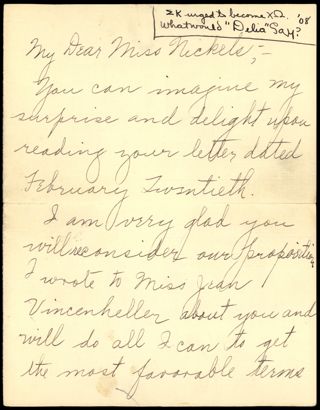 ΣK urged to become XΩ. '08
What would "Delia" Say?
My Dear Miss Nickels;-
You can imagine my
surprise and delight upon
reading your letter dated
February Twentieth.
I am very glad you
will reconsider our proposition
I wrote to Miss Jean
Vincenheller about you and
will do all I can to get
the most favorable terms